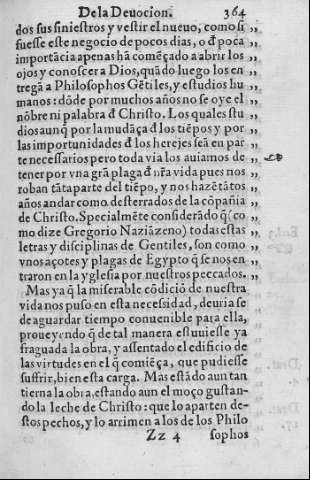 De la Deuocion. 364
dos sus siniestros y vestir el nueuo, como si ,,
fuesse este negocio de pocos dias, o đ poca ,,
importācia apenas hā começado a abrir los ,,
ojos y conoscer a Dios, quādo luego los en ,,
tregā a Philosophos Gētiles, y estudios hu ,,
manos: dōde por muchos años no se oye el ,,
nōbre ni palabra đ Christo. Los quales stu ,,
dios aunq̄ por la mudāça đ los tiēpos y por ,,
las importunidades đ los herejes seā en par ,,
te necessarios pero toda via los auiamos de
tener por vna grā plaga đ nr̄a vida pues nos ,,
roban tāta parte del tiēpo, y nos hazē tātos ,,
años andar como desterrados de la cōpañia ,,
de Christo. Specialmēte considerādo q̄ (co ,,
mo dize Gregorio Naziāzeno) todas estas ,,
letras y disciplinas de Gentiles, son como ,,
vnos açotes y plagas de Egypto q̄ se nos en ,,
traron en la yglesia por nuestros peccados. ,,
Mas ya q̄ la miserable cōdiciō de nuestra
vida nos puso en esta necessidad, deuria se
de aguardar tiempo conuenible para ella,
proueyendo q̄ de tal manera estuuiesse ya
fraguada la obra, y assentado el edificio de
las virtudes en el q̄ comiēça, que pudiesse
suffrir, bien esta carga. Mas estādo aun tan
tierna la obra, estando aun el moço gustan-
do la leche de Christo: que lo aparten de-
stos pechos, y lo arrimen a los de los Philo
Zz 4 sophos